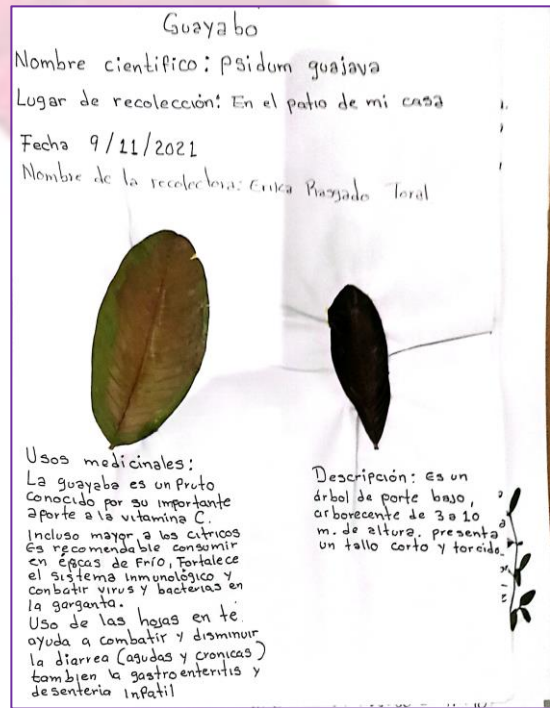 Guayabo
Nombre cientifico: Psidum guajava
Lugar de recolección: En el patio de mi casa
Fecha 9/11/2021
Nombre de la recolectora: Erika Rasgado Toral
Usos medicinales:
La guayaba es un fruto
conocido por su importante
aporte a la vitamina C.
Incluso mayor a los citricos
Es recomendable consumir
en épocas de frío, Fortalece
el sistema inmunológico y
conbatir virus y bacterias en
la garganta.
Uso de las hojas en te
ayuda a combatir y disminuir
la diarrea (agudas y cronicas)
tambien la gastroenteritis y
desenteria infatil
Descripción: Es un
árbol de porte bajo,
arborecente de 3 a 10
m. de altura. presenta
un tallo corto y torcido.